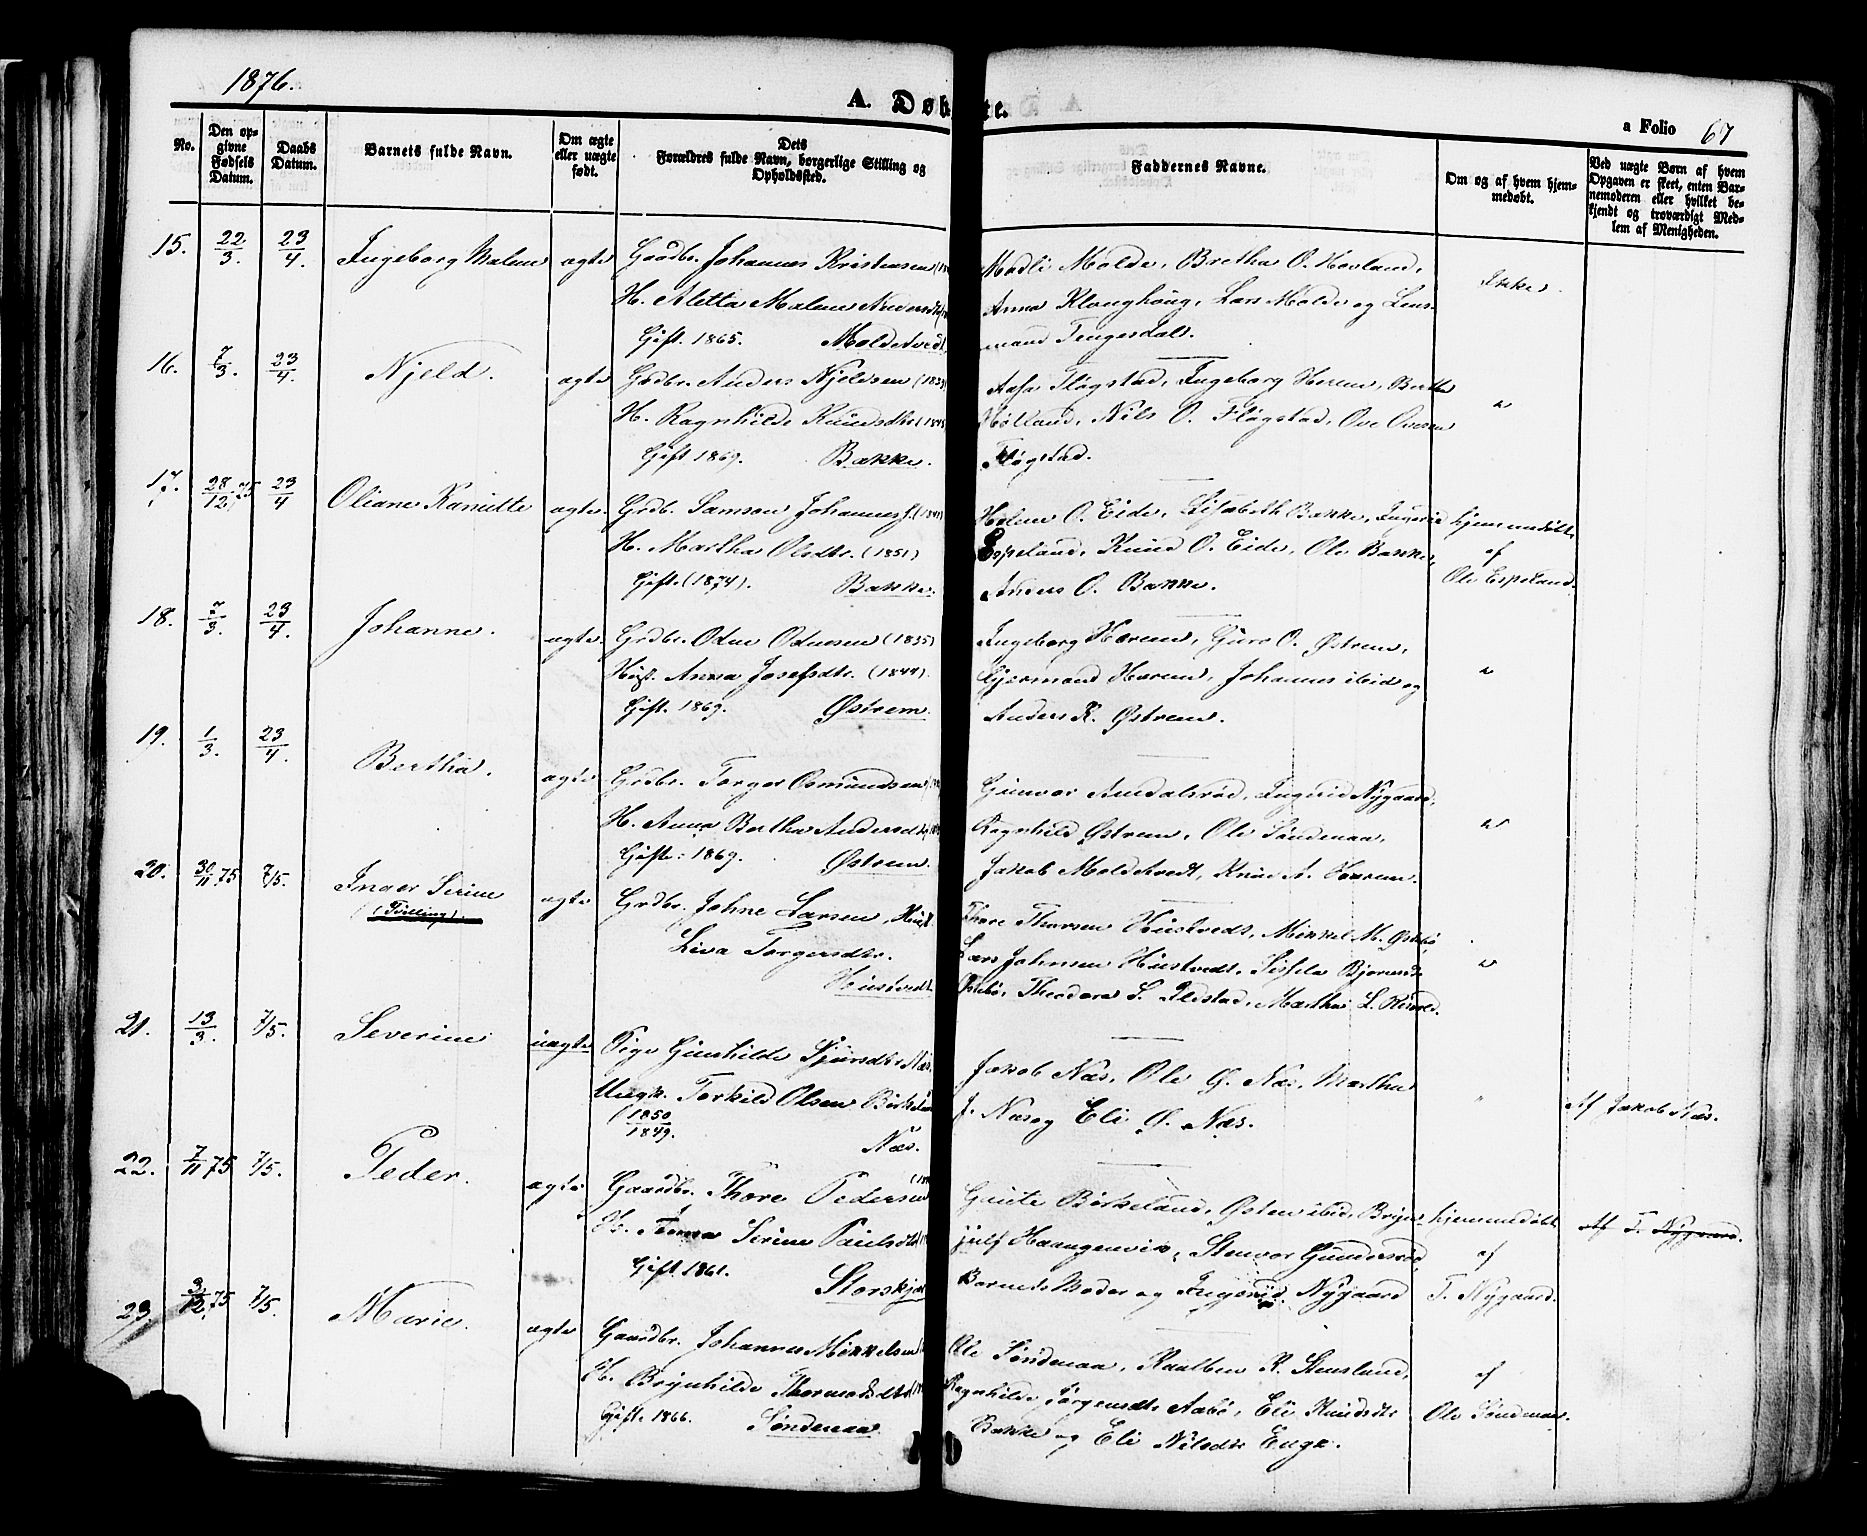 1876.
A. Døbte.
a Folio 67
No.
Den opgivne Fødsels Datum.
Daabs Datum.
Barnets fulde Navn.
Om ægte eller uægte født.
Dets Forældres fulde Navn, borgerlige Stilling og Opholdssted.
Faddernes Navne.
Om og af hvem hjemmedøbt.
Ved uægte Børn af hvem Opgaven er skeet, enten Barnemoderen eller hvilket bekjendt og troværdigt Medlem af Menigheden.
15. 22/3. 23/4. Ingeborg Malene ægte Gaardbr. Johannes Kristensen
H. Aletta Malene
Gift 1865. Moldetvedt
Madli Molde, Bretha O. Hovland,
Anna Klonghaug, Lars Molde og
Tengesdal.
Ikke.
16. 7/3. 23/4. Njeld. ægte Grdbr. Anders Njeldsen
H. Ragnhilde Knudsdtr
Gift 1869. Bakke.
Aasa Fløgstad, Ingeborg Herem, Berthe
Hølland, Nils O. Fløgstad, Ove Ovesen
Fløgstad.
"
17. 28/12 75 23/4 Oliane Kamitte ægte Grdb. Samson Johannes.
H. Martha Olsdtr. (1851)
Gift (1874). Bakke.
Helene O. Eide, Lisabeth Bakke, Ingerid
Espeland, Knud O. Eide, Ole Bakke,
Anders O. Bakke.
hjemmedøbt
af
Ole Espeland.
18. 7/3. 23/4. Johanne. ægte Grdbr. Odne Odnesen (1835)
Hust. Anna Josefsdtr. (1844).
Gift. 1869. Østrem.
Ingeborg Herem, Guro O. Østrem,
Gjermand Herem, Johannes ibid og
Anders K. Østrem.
"
19. 1/3. 23/4. Bertha. ægte Grdbr. Torger Osmundsen
H. Anna Bertha Andersdtr
Gift: 1869. Østrem.
Gunvor Amdalsrød, Ingerid Nygaard,
Ragnhild Østrem, Ole Søndenaa,
Jakob Moldetvedt, Knud A. Herem.
"
20. 30/11 75 7/5. Inger Serine
(Tvilling)
ægte Grdbr. Johne Larsen, Hust.
Liva Torgersdtr.
Hustvedt
Thore Thorsen Hustvedt, Mikkel M. Østebø,
Lars Johnsen Hustvedt, Sissela Bjørnsdt
Østebø, Theodora S. Ilstad, Martha L.
"
21. 13/3. 7/5. Severine uægte Pige Gunhilde Sjursdtr Næs.
Ungk. Torkild Olsen
1850
1849.
Næs.
Jakob Næs, Ole G. Næs, Martha
J. Næs og Eli O. Næs.
"
Af Jakob Næs.
22. 7/11 75 7/5. Peder. ægte Gaardbr. Thore Pedersen
H. Anna Serine Paulsdtr
Gift 1861. Storskjær
Gaute Birkeland, Østen ibid, Bryn-
julf Haaugenvik, Stenvor Gundersrød,
Barnets Moder og Ingerid Nygaard
hjemmedøbt
af
T. Nygaard.
Af T. Nygaard.
23. 3/12 75 7/5. Marie. ægte Gaardbr. Johannes Mikkelsen
H. Brynhilde Thormodsdtr
Gift 1866. Søndenaa
Ole Søndenaa, Kaalben K. Stensland,
Ragnhilde Torgersdtr Aabø, Eli Knudsdtr
Bakke og Eli Nilsdtr Enge.
af
Ole Søndenaa.